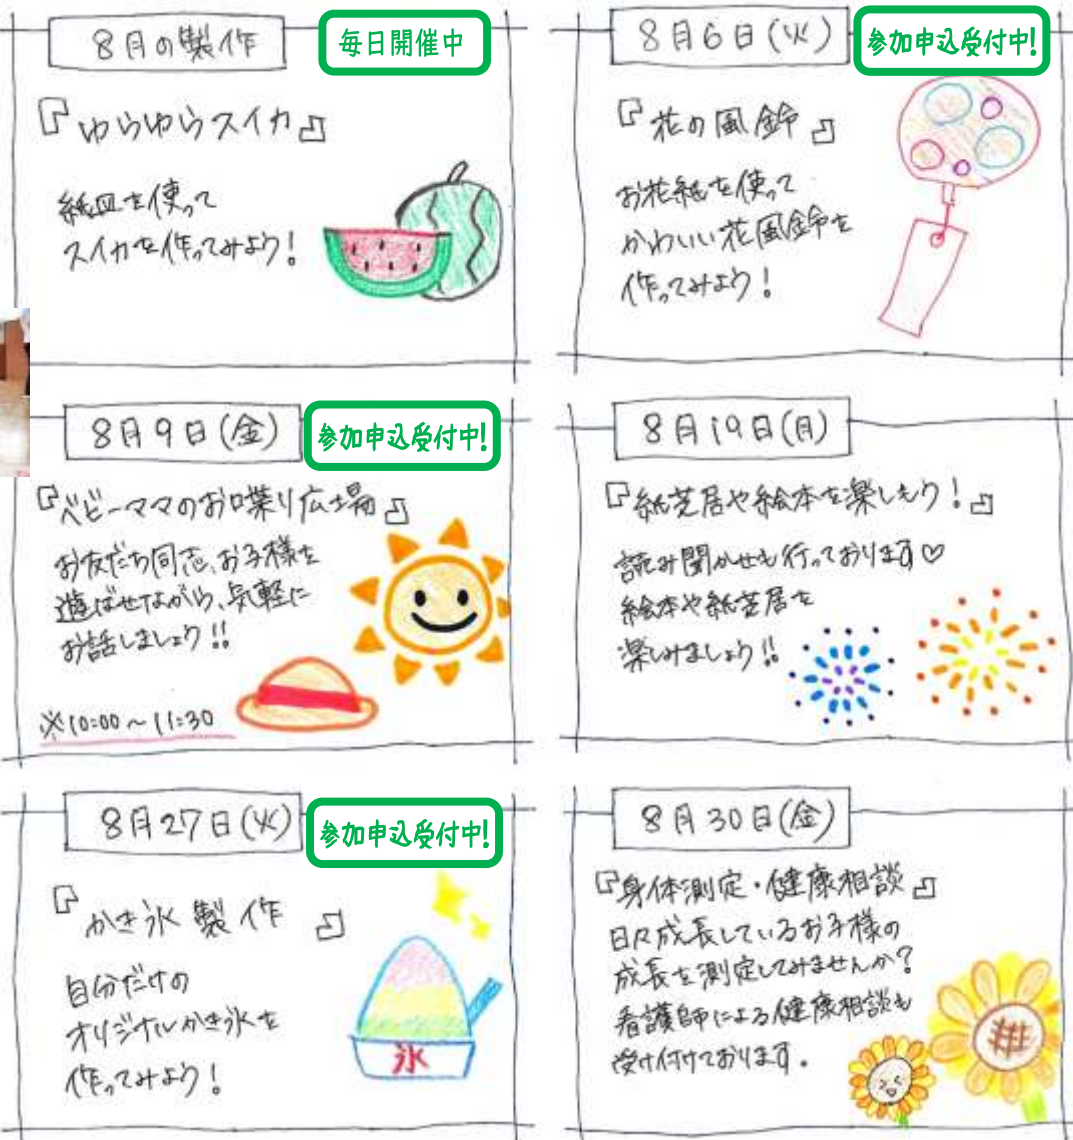 8月の製作
毎日開催中
『ゆらゆらスイカ』
紙皿を使って
スイカを作ってみよう!
8月6日(火)
参加申込受付中!
『花の風鈴』
お花紙を使って
かわいい花風鈴を
作ってみよう!
8月9日(金)
参加申込受付中!
『ベビーママのお喋り広場』
お友だち同志、お子様を
遊ばせながら、気軽に
お話しましょう!!
※10:00~11:30
8月19日(月)
『紙芝居や絵本を楽しもう!』
読み聞かせも行っております♡
絵本や紙芝居を
楽しみましょう!!
8月27日(火)
参加申込受付中!
『かき氷製作』
自分だけの
オリジナルかき氷を
作ってみよう!
氷
8月30日(金)
『身体測定・健康相談』
日々成長しているお子様の
成長を測定してみませんか?
看護師による健康相談も
受け付けております。